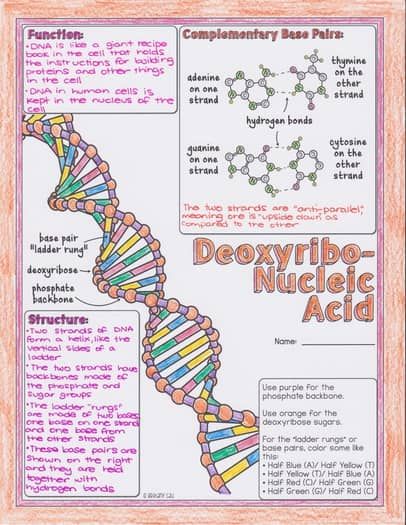 Function:
• DNA is like a giant recipe
book in the cell that holds
the instructions for building
proteins and other things
in the cell
• DNA in human cells is
kept in the nucleus of the
cell
Complementary Base Pairs:
adenine
on one
strand
thymine
on the
other
strand
hydrogen bonds
guanine
on one
strand
cytosine
on the
other
strand
The two strands are "anti-parallel,"
meaning one is upside down as
compared to the other
Deoxyribo-
Nucleic
Acid
base pair
"ladder rung"
deoxyribose
phosphate
backbone
Name:
Structure:
• Two strands of DNA
form a helix, like the
vertical sides of a
ladder
• The two strands have
backbones made of
the phosphate and
sugar groups
• The ladder "rungs"
are made of two bases,
one base on one strand
and one base from
the other strands
• These base pairs are
shown on the right
and they are held
together with
hydrogen bonds
Use purple for the
phosphate backbone.
Use orange for the
deoxyribose sugars.
For the "ladder rungs" or
base pairs, color some like
this:
• Half Blue (A)/ Half Yellow (T)
• Half Yellow (T)/ Half Blue (A)
• Half Red (C)/ Half Green (G)
• Half Green (G)/ Half Red (C)